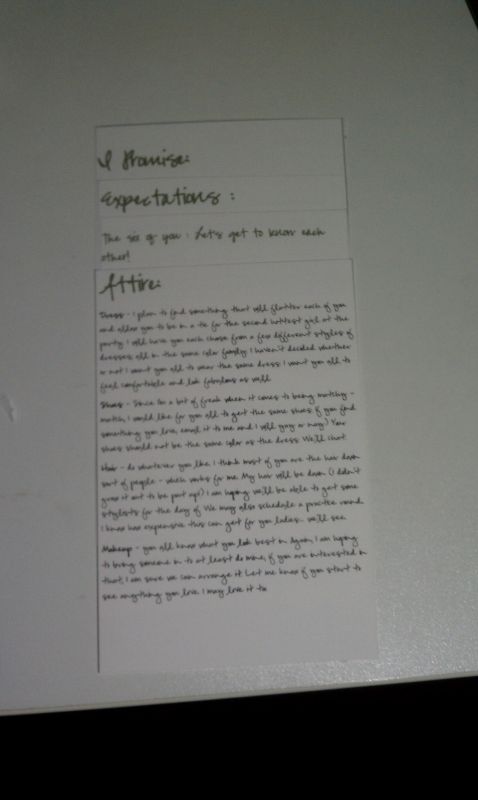 I Promise:
Expectations :
The six of you : Let's get to know each
other!
Attire:
Dress - I plan to find something that will flatter each of you
and allow you to be in a tie for the second hottest girl at the
party. I will have you each chose from a few different styles of
dresses all in the same color family. I haven't decided whether
or not I want you all to wear the same dress. I want you all to
feel comfortable and look fabulous as well.
Shoes - Since I'm a bit of freak when it comes to being matchy -
match, I would like for you all to get the same shoes. If you find
something you love, email it to me and I will yay or nay! Your
shoes should not be the same color as the dress. We'll chat.
Hair - do whatever you like. I think most of you are the hair down
sort of people - which works for me. My hair will be down (I didn't
grow it out to be put up!) I am hoping we'll be able to get some
stylists for the day of. We may also schedule a practice round.
I know how expensive this can get for you ladies.. we'll see.
Makeup - you all know what you look best in. Again, I am hoping
to bring someone in to at least do mine, if you are interested in
that, I am sure we can arrange it. Let me know if you start to
see anything you love. I may love it too